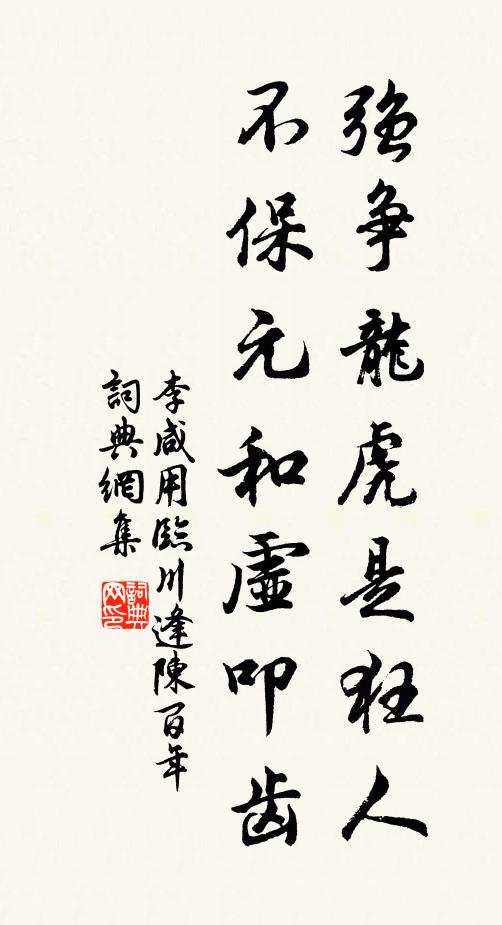 強争龍虎是狂人
不保元和虛叩齿
李咸用臨川逢陳百年
詞典網集
詞典网印